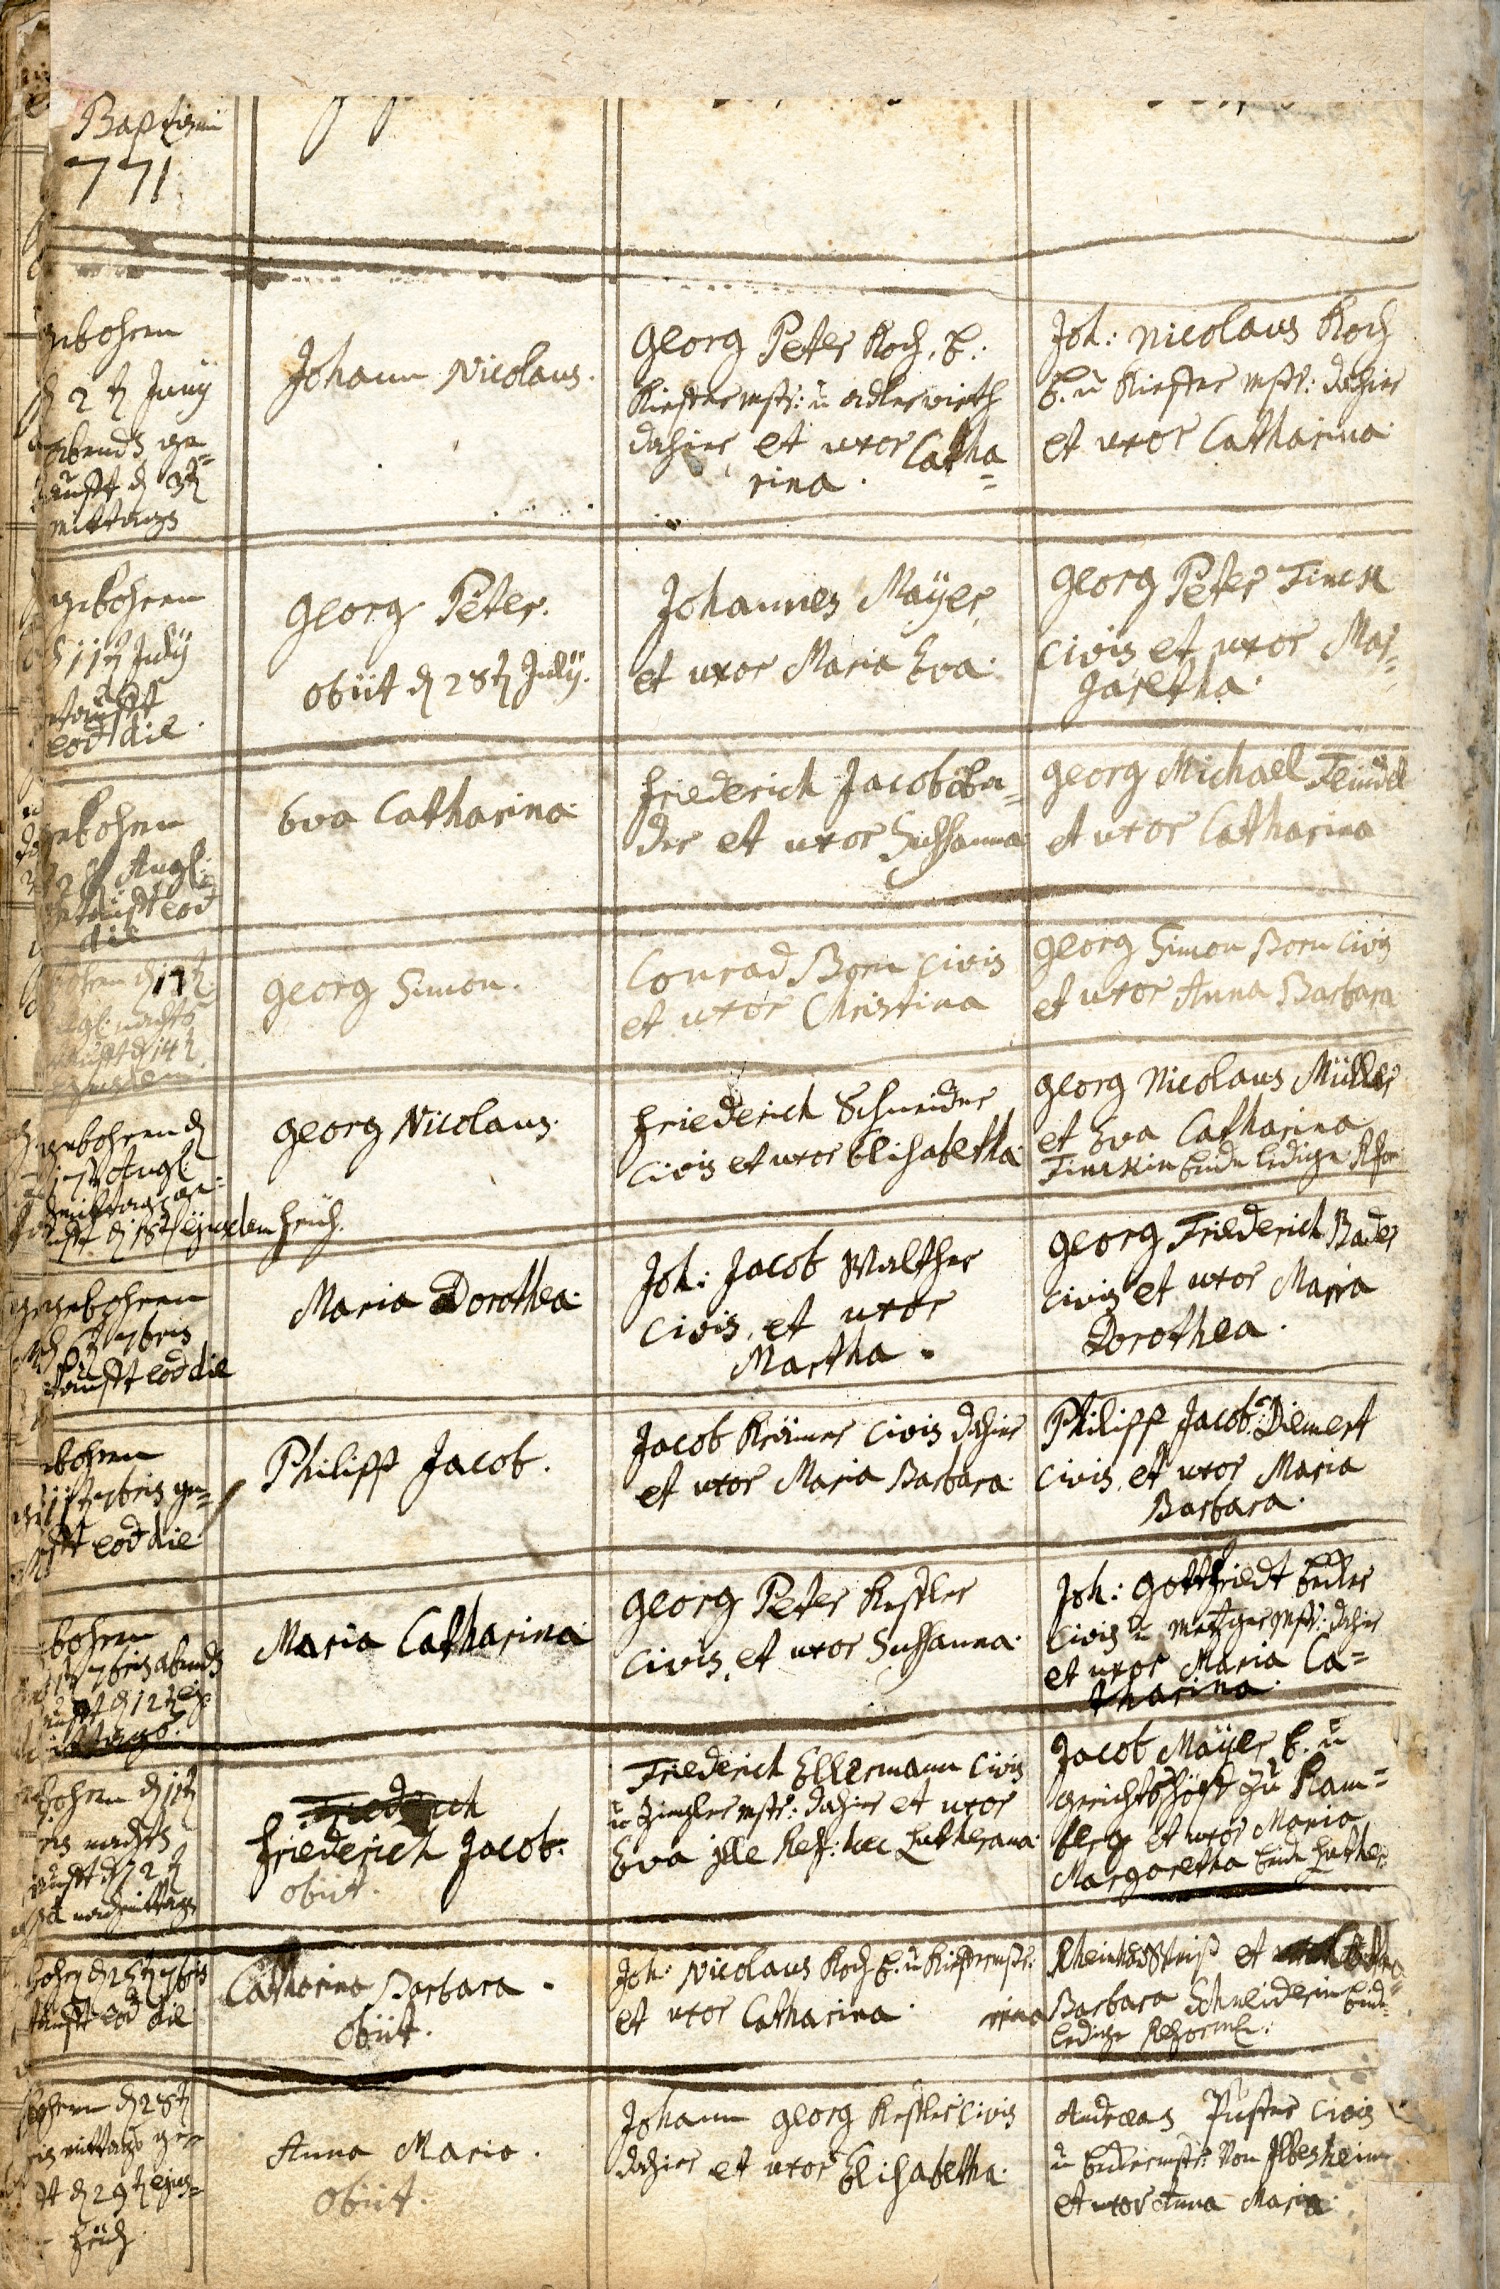 Baptismi
771
gebohren
d 2t Junij
abends ge=
taufft d 3t
mittags
Johann Nicolaus.
Georg Peter Koch, b:
Kieffermstr: u Adlerwirth
dahier et uxor Catha
rina.
Joh: Nicolaus Koch
b. u Kieffer mstr: dahier
et uxor Catharina
gebohren
d 11t Julij
getaufft
eod die.
Georg Peter.
obiit d 28t Julij.
Johannes Mäyer,
et uxor Maria Eva.
Georg Peter Finck
civis et uxor Mar=
garetha.
gebohren
Augl:
getaufft eod
die
Eva Catharina
Friederich Jacob Ba=
der et uxor Sussanna
Georg Michael
et uxor Catharina
bohren d 17t
nachts
taufft d 14t
ejusdem
Georg Simon.
Conrad Born civis
et uxor Christina
Georg Simon Born civis
et uxor Anna Barbara
gebohren d
17t Augl:
mittags ge=
taufft d 18t ejusdem früh.
Georg Nicolaus.
Friederich Schneider
civis et uxor Elisabetha
Georg Nicolaus Müller
et Eva Catharina
Finckin beide ledige Refor
gebohren
d 6t 7bris
taufft eod die
Maria Dorothea
Joh: Jacob Walther
civis, et uxor
Martha.
Georg Friederich Bader
civis et uxor Maria
Dorothea.
bohren
7bris ge=
fft eod die
Philipp Jacob.
Jacob Krämer civis dahier
et uxor Maria Barbara
Philipp Jacob Diemert
civis, et uxor Maria
Barbara.
bohren
11t 7bris abends
taufft d 12t ej=
mittags.
Maria Catharina
Georg Peter Kestler
civis, et uxor Sussanna.
Joh: Gottfriedt
civis u Metzgermstr: dahier
et uxor Maria Ca=
tharina.
bohren d 11t
nachts
taufft d 12t
nachmittags
Friederich
Friederich Jacob.
obiit.
Friederich Ellermann civis
u Zieglermstr: dahier et uxor
Eva ille Ref: hec Lutherana
Jacob Mäyer b. u
Gerichtsschöff zu Ram=
berg et uxor Maria
Margaretha beide Luther:
bohren d 25t 7bris
taufft eod die
Catharina Barbara.
obiit.
Joh: Nicolaus Koch b. u Kieffermstr:
et uxor Catharina.
et Catha
rina Barbara Schneiderin beide
ledige Reform:
bohren d 28t
mittags ge=
t d 29t ejus=
früh
Anna Maria.
obiit.
Johann Georg Kestler civis
dahier et uxor Elisabetha
Andreas civis
u von Ilbesheim
et uxor Anna Maria